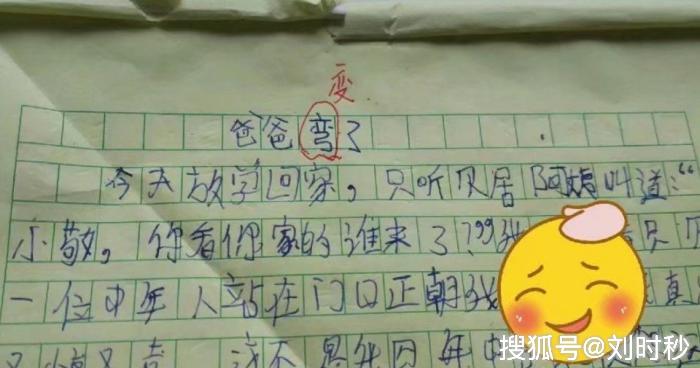 变
爸爸弯了
今天放学回家，只听邻居阿姨叫道：“
小敬，你看你家的谁来了？”我
一位中年人站在门口正朝我 真
又 又 我不是
搜狐号@刘时秒